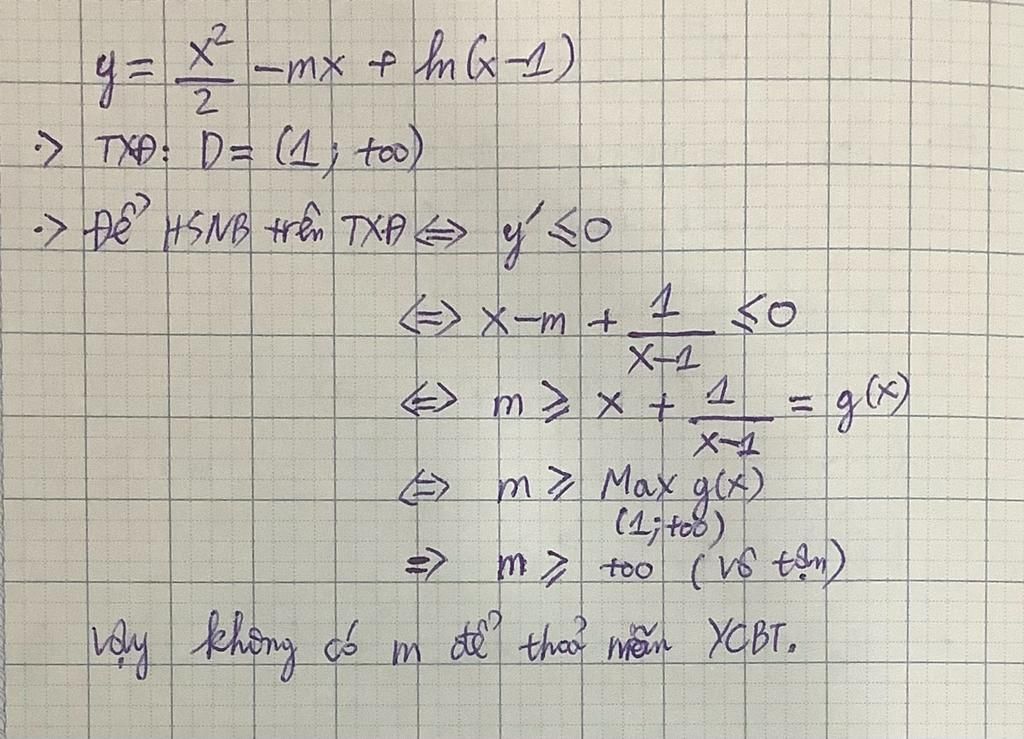 y = x²/2 - mx + ln(x-1)
·> TXĐ: D = (1; +∞)
·> Để HSNB trên TXĐ ⇔ y' ≤ 0
⇔ x - m + 1/(x-1) ≤ 0
⇔ m ≥ x + 1/(x-1) = g(x)
⇔ m ≥ Max g(x)
(1; +∞)
⇒ m ≥ +∞ (vô tận)
Vậy không có m để thoả mãn YCBT.